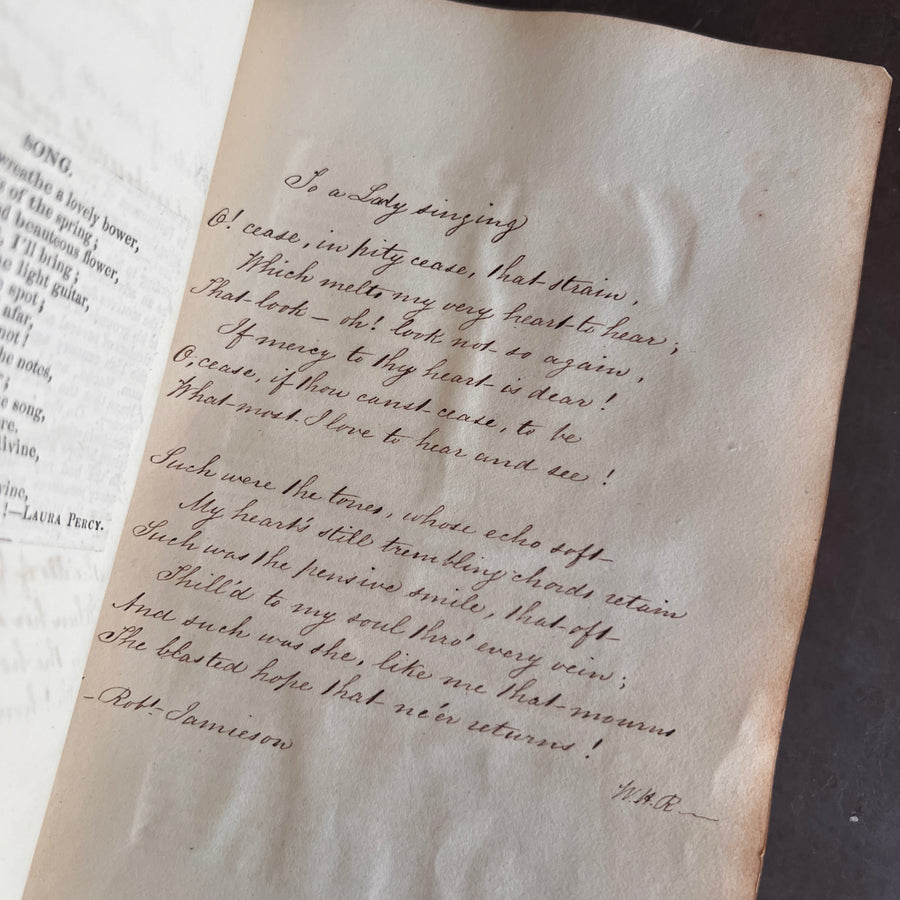 SONG.
wreathe a lovely bower,
of the spring;
beauteous flower,
I'll bring;
light guitar,
spot;
afar,
not!
notes,
song,
divine,
!—LAURA PERCY.
To a Lady singing
O! cease, in pity cease, that strain,
Which melts my very heart to hear;
That look – oh! look not so again,
If mercy to thy heart is dear!
O, cease, if thou canst cease, to be
What most I love to hear and see!
Such were the tones, whose echo soft
My heart's still trembling chords retain
Such was the pensive smile, that oft
Thill'd to my soul thro' every vein;
And such was she, like me that mourns
The blasted hope that ne'er returns!
– Robt. Jamieson
W.H.R.